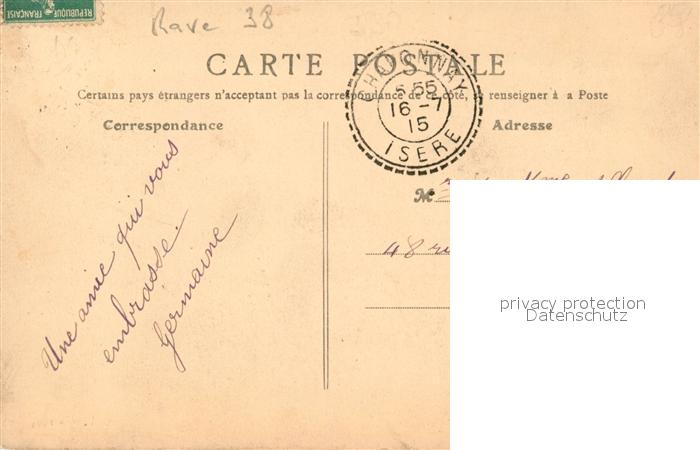 REPUBLIQUE FRANÇAISE
Rare 38
CARTE POSTALE
Certains pays étrangers n'acceptant pas la correspondance de ce côté, se renseigner à a Poste
CHAPONNAY
6 55
16 - 7
15
ISERE
Correspondance
Adresse
Une amie qui vous
embrasse.
Germaine
M
48 
privacy protection
Datenschutz